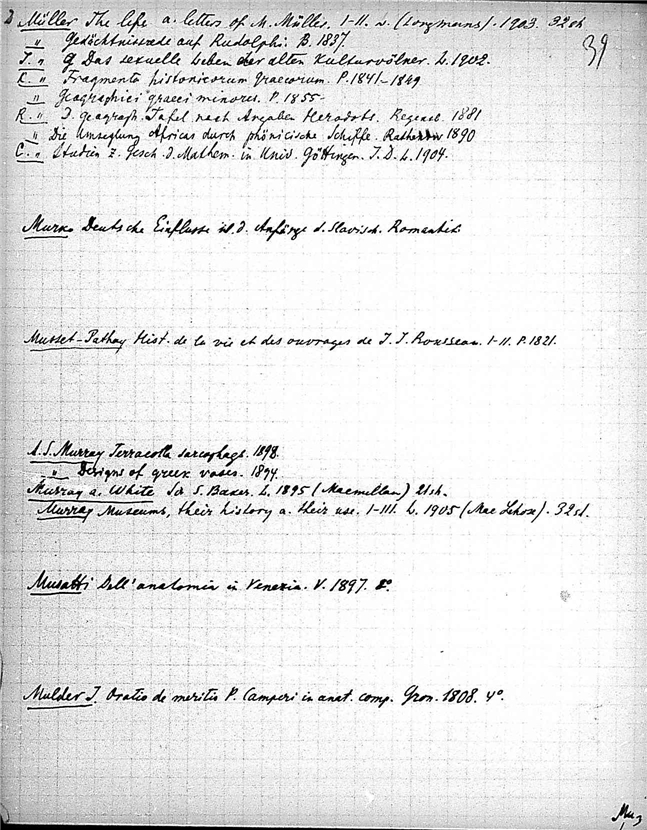 D Müller The life a. letters of M. Müller. I-II. L. (Longmans). 1903. 32sh
39
" Gedächtnissrede auf Rudolphi. B. 1837.
J. " Das sexuelle Leben der alten Kulturvölker. L. 1902.
C. " Fragmenta historicorum graecorum. P. 1841-1849
" Geographici graeci minores. P. 1855-
R. " D. geograph. Tafel nach Angaben Herodots. 1881
" Die Umseglung Africas durch phönicische Schiffe. 1890
C. " Studien z. Gesch. d. Mathem. in Univ. Göttingen. I. D. L. 1904.
Murko Deutsche Einflusse d. Anfänge d. slavisch. Romantik.
Musset-Pathay Hist. de la vie et des ouvrages de J. J. Rousseau. I-II. P. 1821.
A. S. Murray Terracotta sarcophags. 1898.
" Designs of greek vases. 1894.
Murray a. White Sir S. Baker. L. 1895 (Macmillan) 21sh.
Murray Museums, their history a. their use. I-III. L. 1905 (Mac Lehose). 32sh.
Musatti Dell'anatomia in Venezia. V. 1897. 8°.
Mulder J. Oratio de meritis P. Camperi in anat. comp. Gron. 1808. 4°.